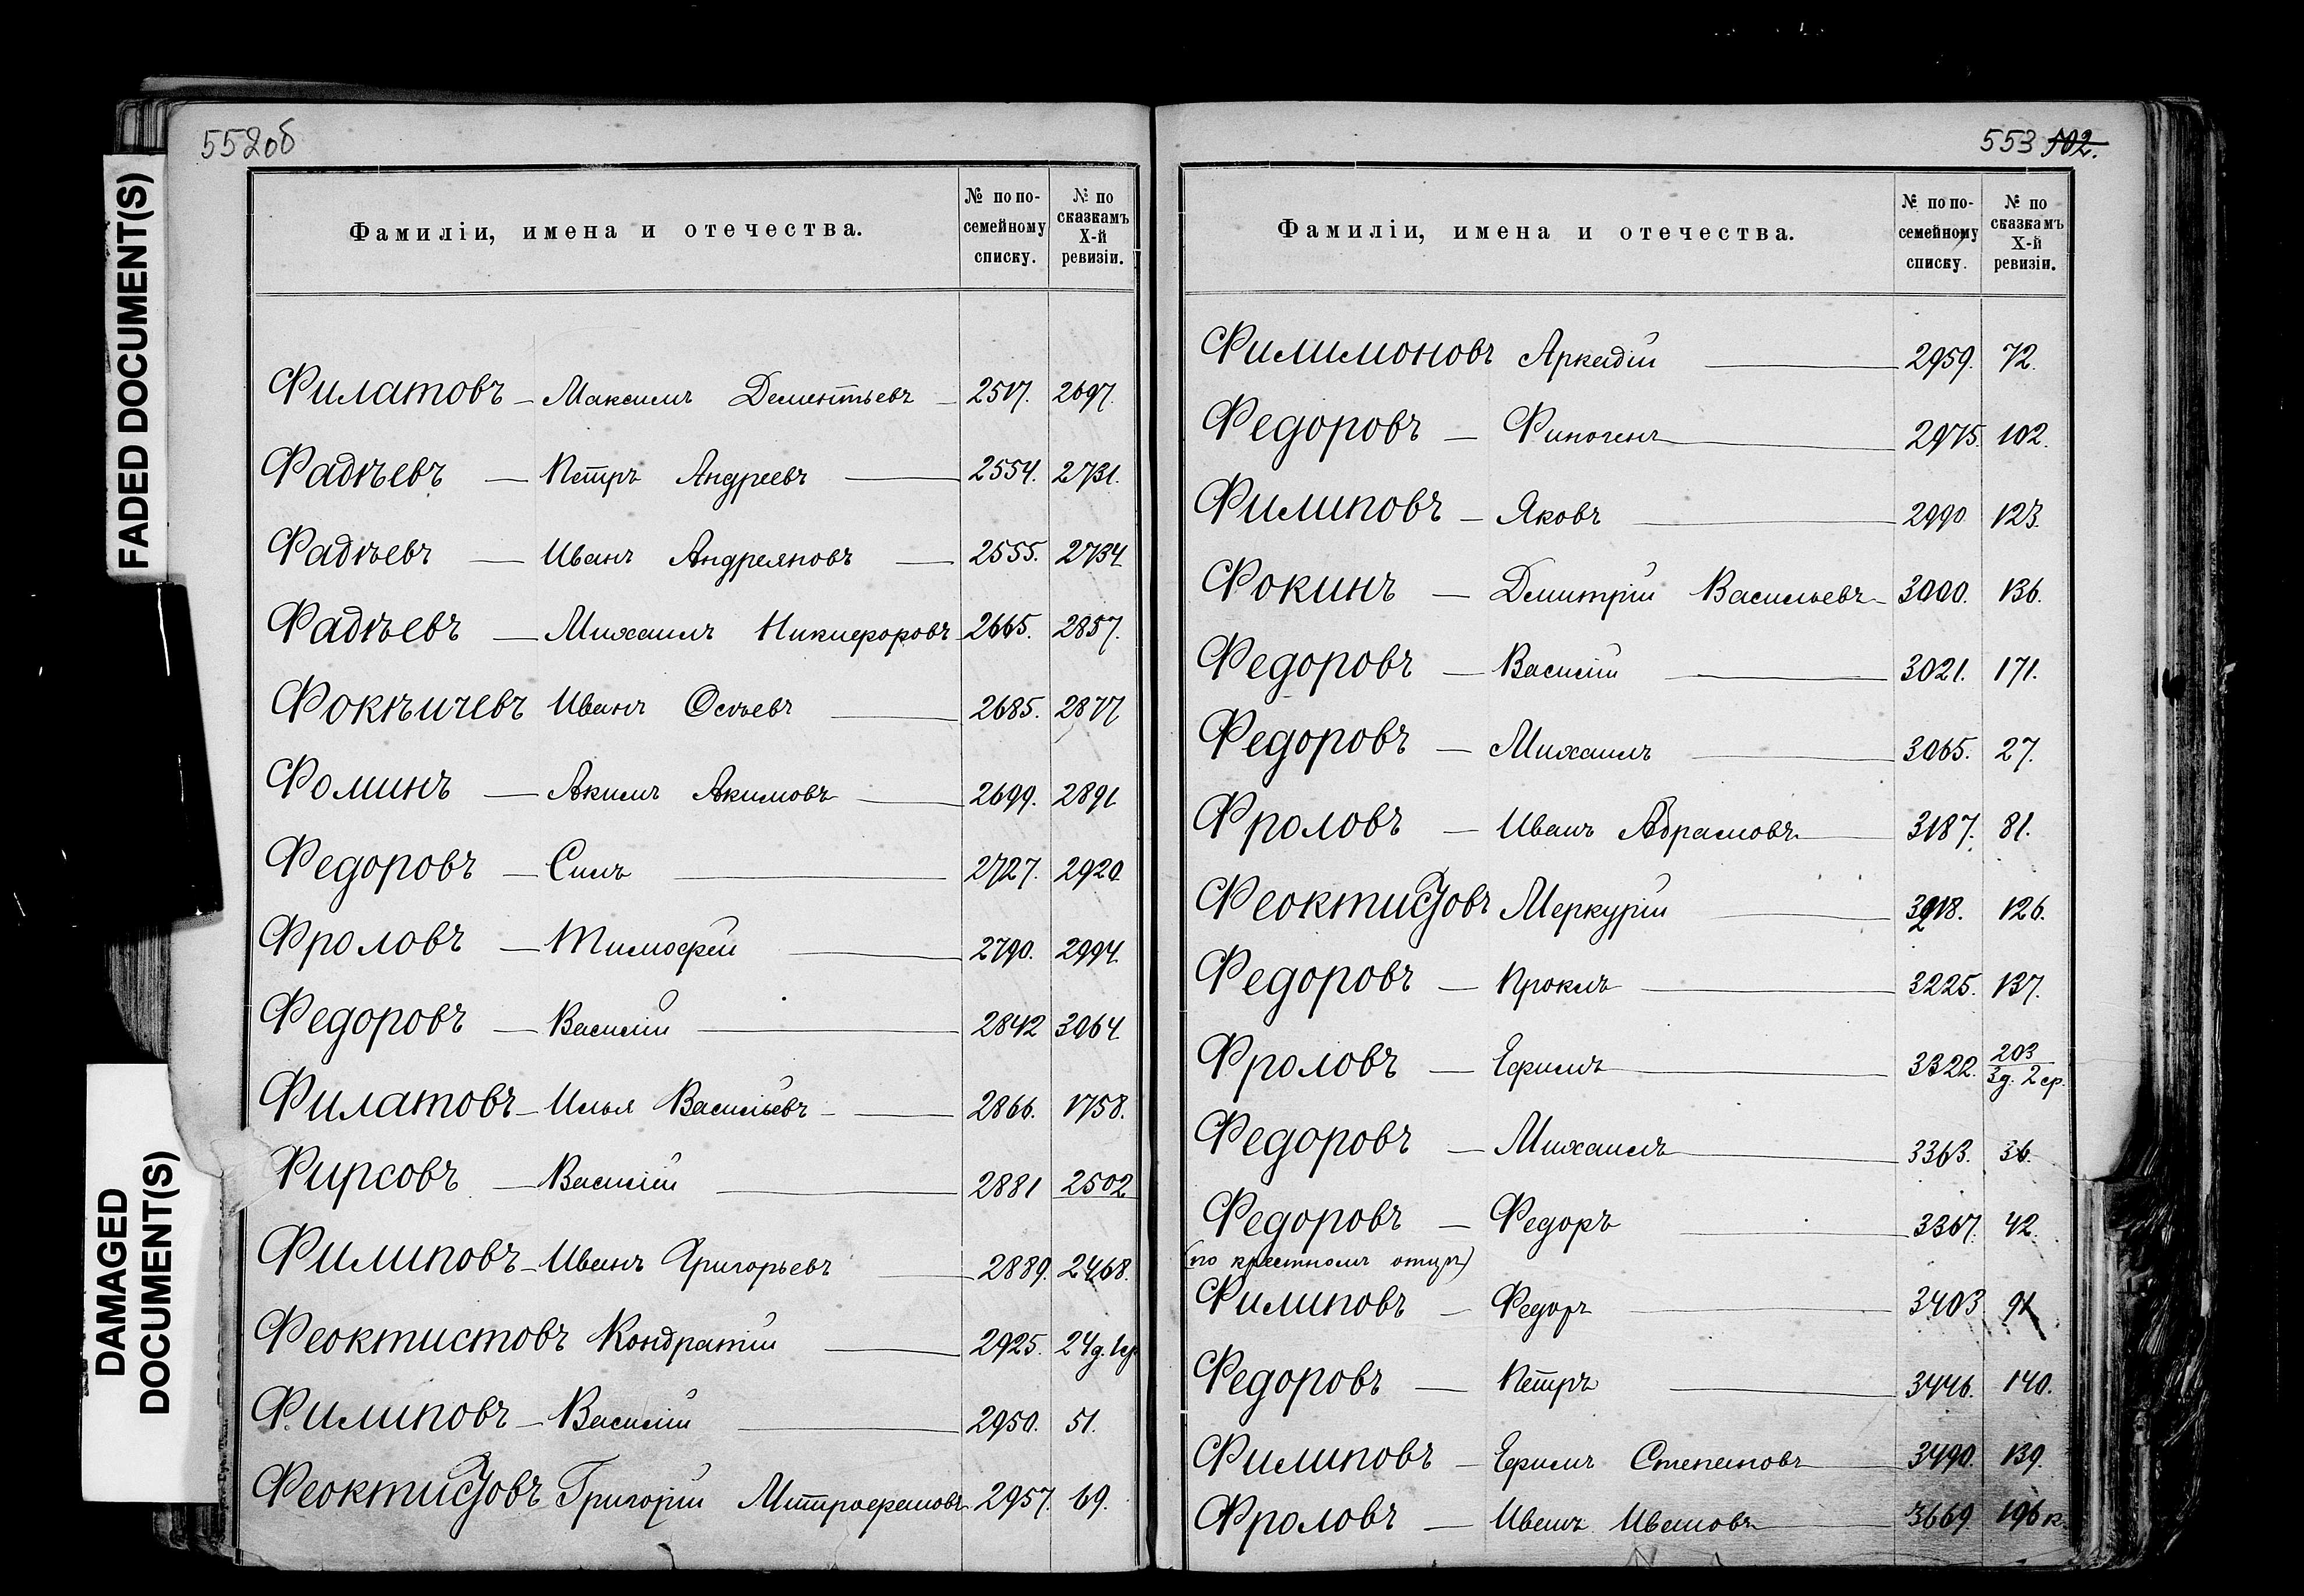 552об
Фамиліи, имена и отечества.
№ по по-
семейному
списку.
№ по
сказкамъ
X-й
ревизіи.
Филатовъ — Максимъ Дементьевъ — 2517. 2697.
Фадѣевъ — Петръ Андреевъ — 2554. 2731.
Фадѣевъ — Иванъ Андреяновъ — 2555. 2734
Фадѣевъ — Михаилъ Никифоровъ 2665. 2857.
Фокѣичевъ Иванъ Осиевъ — 2685. 2877
Фоминъ — Акимъ Акимовъ — 2699. 2891
Федоровъ — Симъ — 2727. 2920
Фроловъ — Тимофей — 2790. 2994.
Федоровъ — Василій — 2842 3064
Филатовъ — Илья Васильевъ — 2866. 1758.
Фирсовъ — Василій — 2881 2502
Филиповъ — Иванъ Григорьевъ — 2889. 2468.
Феоктистовъ Кондратій — 2925. 24д. 1ср
Филиповъ — Василій — 2950. 51.
Феоктистовъ Григорій Митрофановъ 2957. 69.
553 502.
Фамиліи, имена и отечества.
№ по по-
семейному
списку.
№ по
сказкамъ
X-й
ревизіи.
Филимоновъ Аркадій — 2959. 72.
Федоровъ — Финогенъ — 2975. 102.
Филиповъ — Яковъ — 2990 123.
Фокинъ — Дмитрій Васильевъ — 3000. 136.
Федоровъ — Василій — 3021. 171.
Федоровъ — Михаилъ — 3065. 27.
Фроловъ — Иванъ Абрамовъ — 3187. 81.
Феоктистовъ Меркурій — 3218. 126.
Федоровъ — Проклъ — 3225. 137.
Фроловъ — Ефимъ — 3322. 203
3д. 2ср.
Федоровъ — Михаилъ — 3363. 36.
Федоровъ — Федоръ — 3367. 42.
(по крестномъ отцѣ)
Филиповъ — Федоръ — 3403 91
Федоровъ — Петръ — 3446. 140.
Филиповъ — Ефимъ Степановъ — 3490. 139.
Фроловъ — Иванъ Ивановъ — 3669 196 к.
FADED DOCUMENT(S)
DAMAGED
DOCUMENT(S)